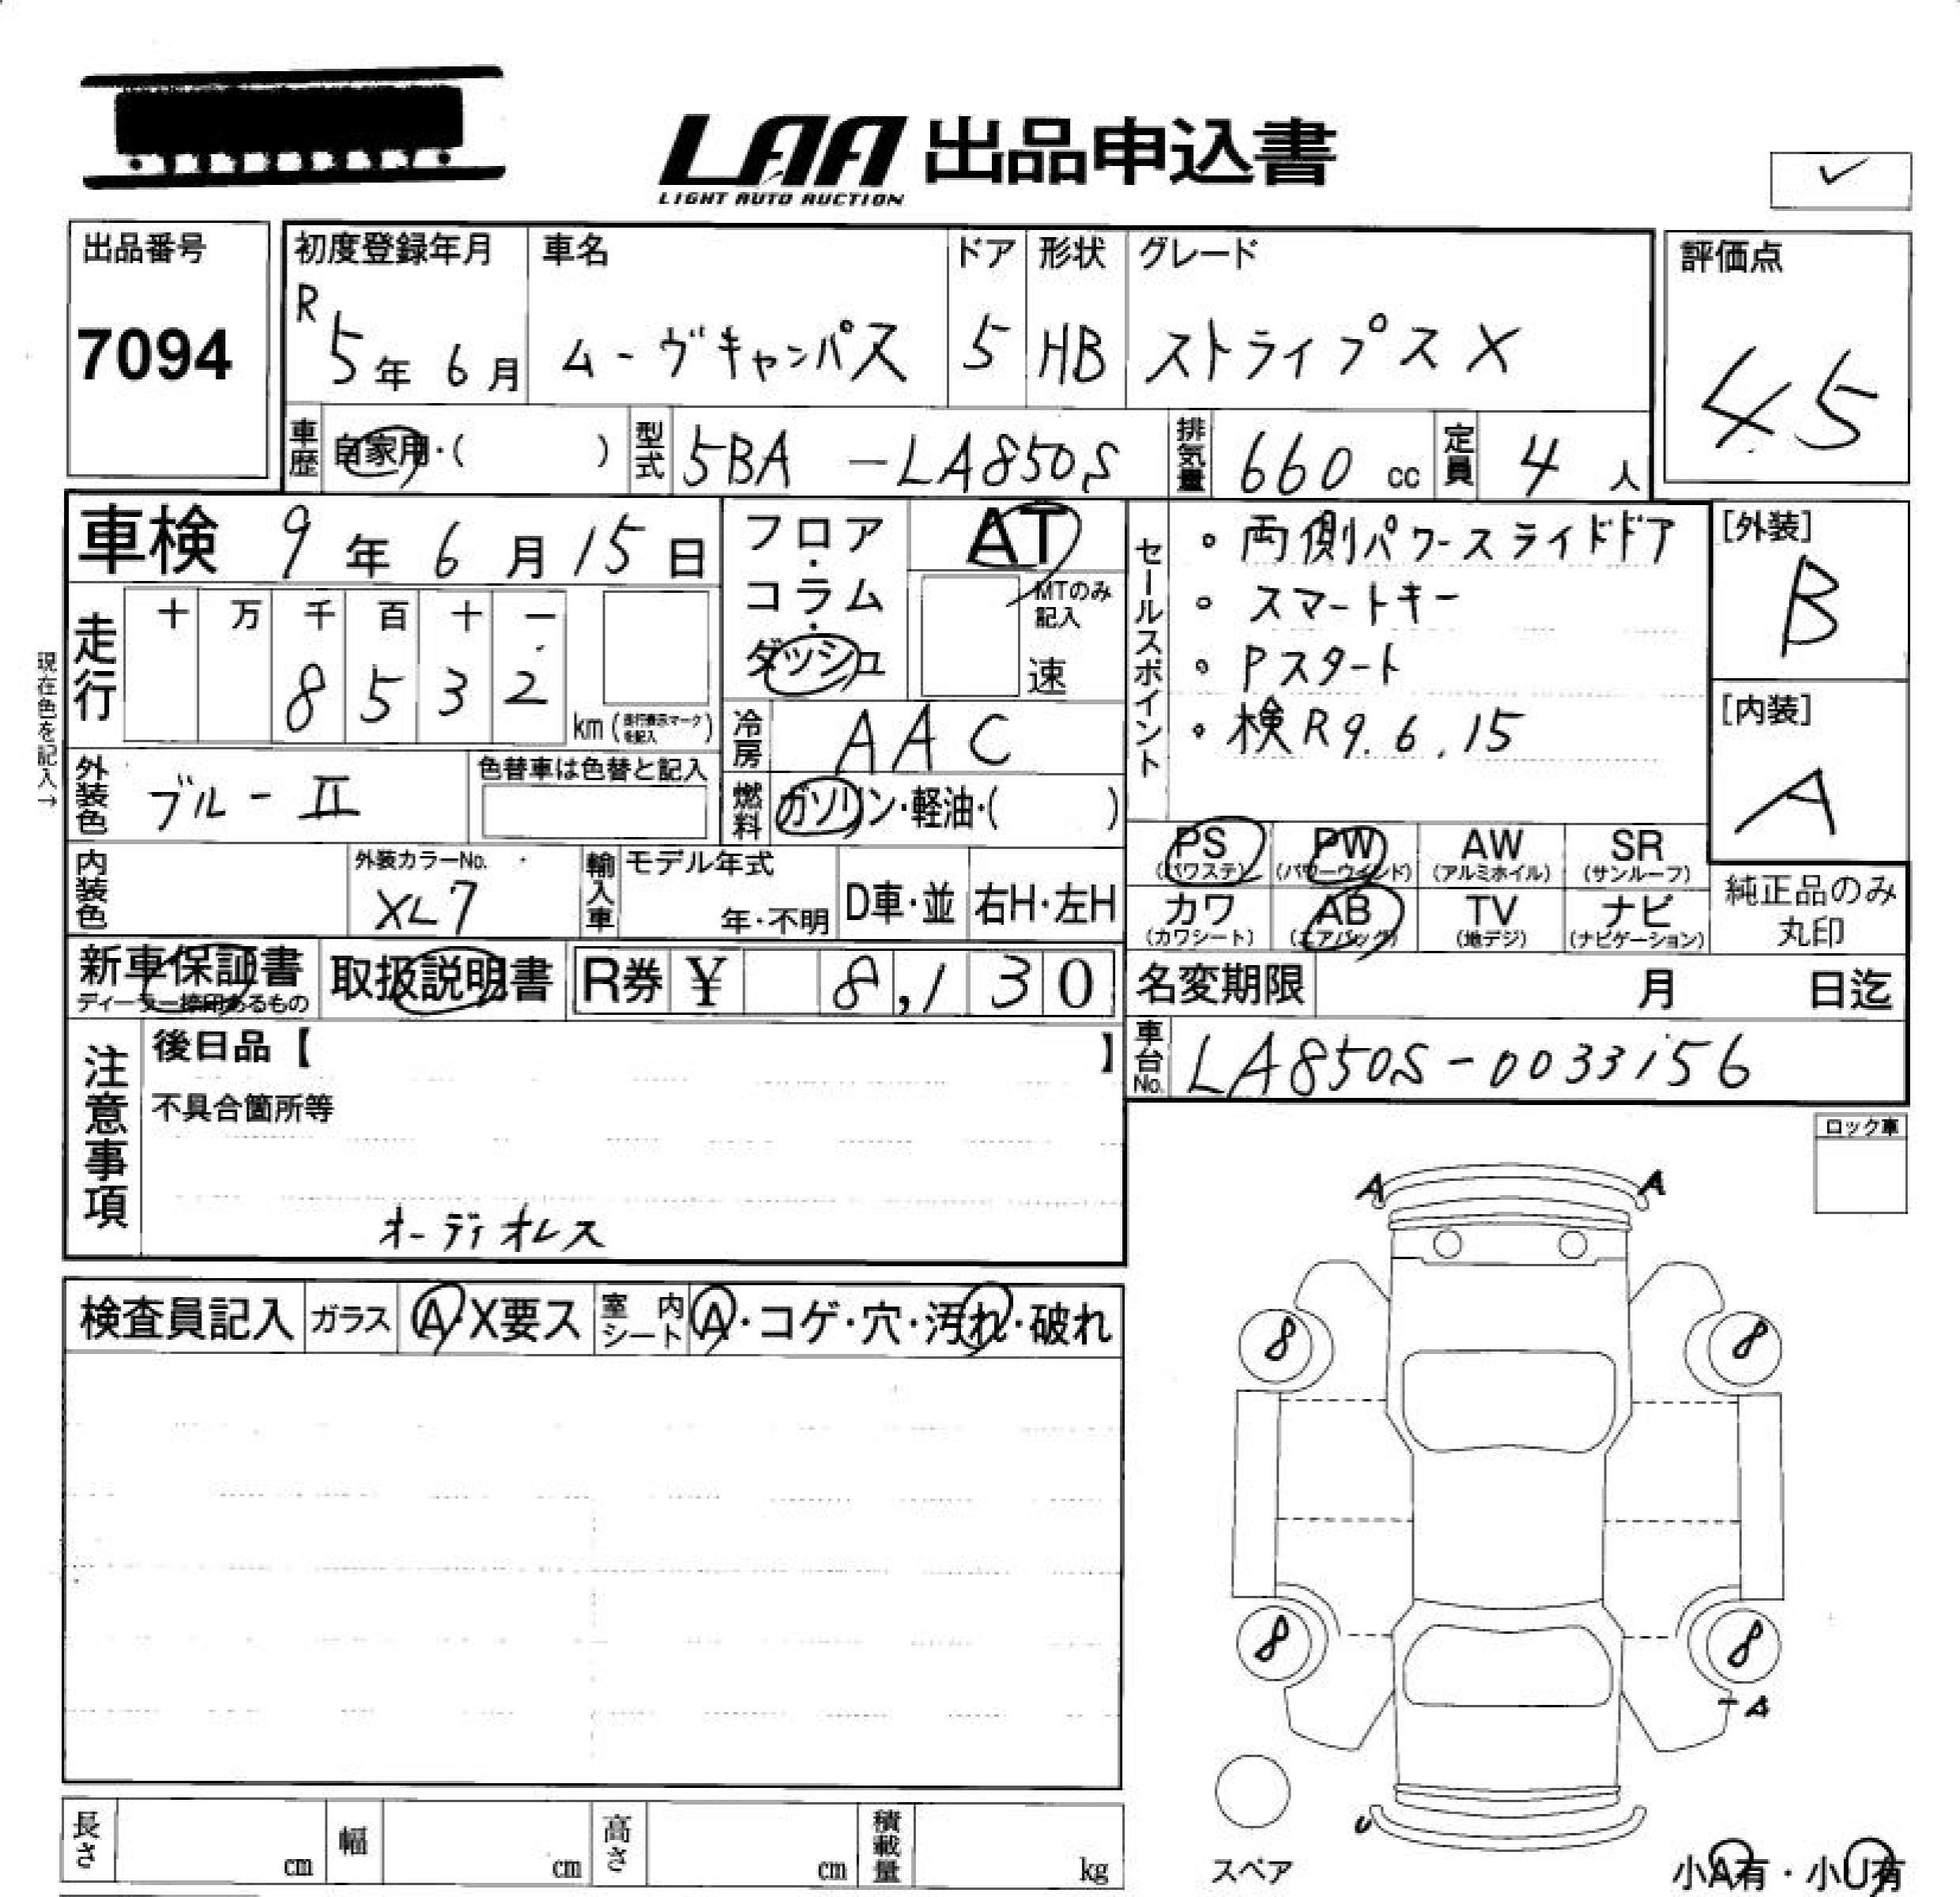 LAA 出品申込書
LIGHT AUTO AUCTION
✓
出品番号
7094
初度登録年月
R 5年 6月
車名
ムーヴキャンパス
ドア
5
形状
HB
グレード
ストライプス X
評価点
4.5
車歴
自家用・( )
型式
5BA -LA850S
排気量
660 cc
定員
4 人
車検 9年 6月 15日
走行
十 万 千 百 十 一
8 5 3 2
km (走行表示マークを記入)
現在色を記入→
フロア・コラム・ダッシュ
AT
MTのみ記入
速
冷房
AAC
燃料
ガソリン・軽油・( )
セールスポイント
・両側パワースライドドア
・スマートキー
・Pスタート
・検R9.6.15
[外装]
B
[内装]
A
外装色
ブルーII
色替車は色替と記入
内装色
外装カラーNo.
XL7
輸入車
モデル年式
年・不明
D車・並
右H・左H
PS (パワステ)
PW (パワーウィンド)
AW (アルミホイル)
SR (サンルーフ)
カワ (カワシート)
AB (エアバッグ)
TV (地デジ)
ナビ (ナビゲーション)
純正品のみ丸印
新車保証書
ディーラー捺印あるもの
取扱説明書
R券 ¥ 8,130
名変期限 月 日迄
車台No.
LA850S-0033156
注意事項
後日品【 】
不具合箇所等
オーディオレス
ロック車
検査員記入
ガラス
A・X要ス
室内シート
A・コゲ・穴・汚れ・破れ
A A
8 8
8 8
-A
U
スペア
小A有・小U有
長さ cm
幅 cm
高さ cm
積載量 kg